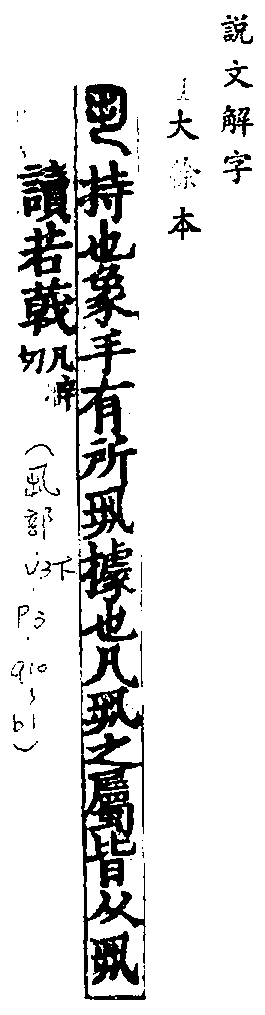 說文解字
大徐本
𠃨持也象手有所𠃨據也凡𠃨之屬皆从𠃨
讀若戟
几劇切
(𠃨部.V3下.P3.a10~b1)